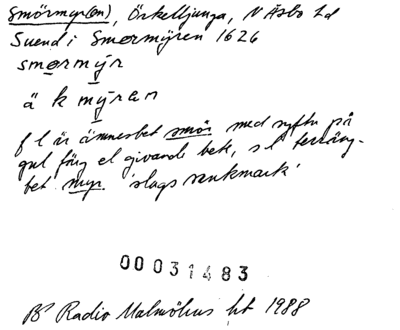 Smörmyr(en), Örkelljunga, N Åsbo hd
Suend i Smørmÿren 1626
smørmȳr
ä k mȳran
f l är ämnesbet smör med syftn på
gul färg el givande bete, s l terräng-
bet myr 'slags sankmark'
00031483
BP Radio Malmöhus ht 1988